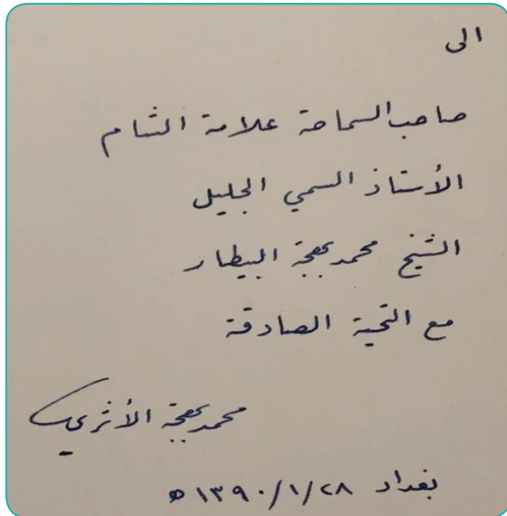 الى
صاحب السماحة علامة الشام
الأستاذ السمي الجليل
الشيخ محمد بهجة البيطار
مع التحية الصادقة
محمد بهجة الأثري
بغداد ٢٨/١/١٣٩٠ ه